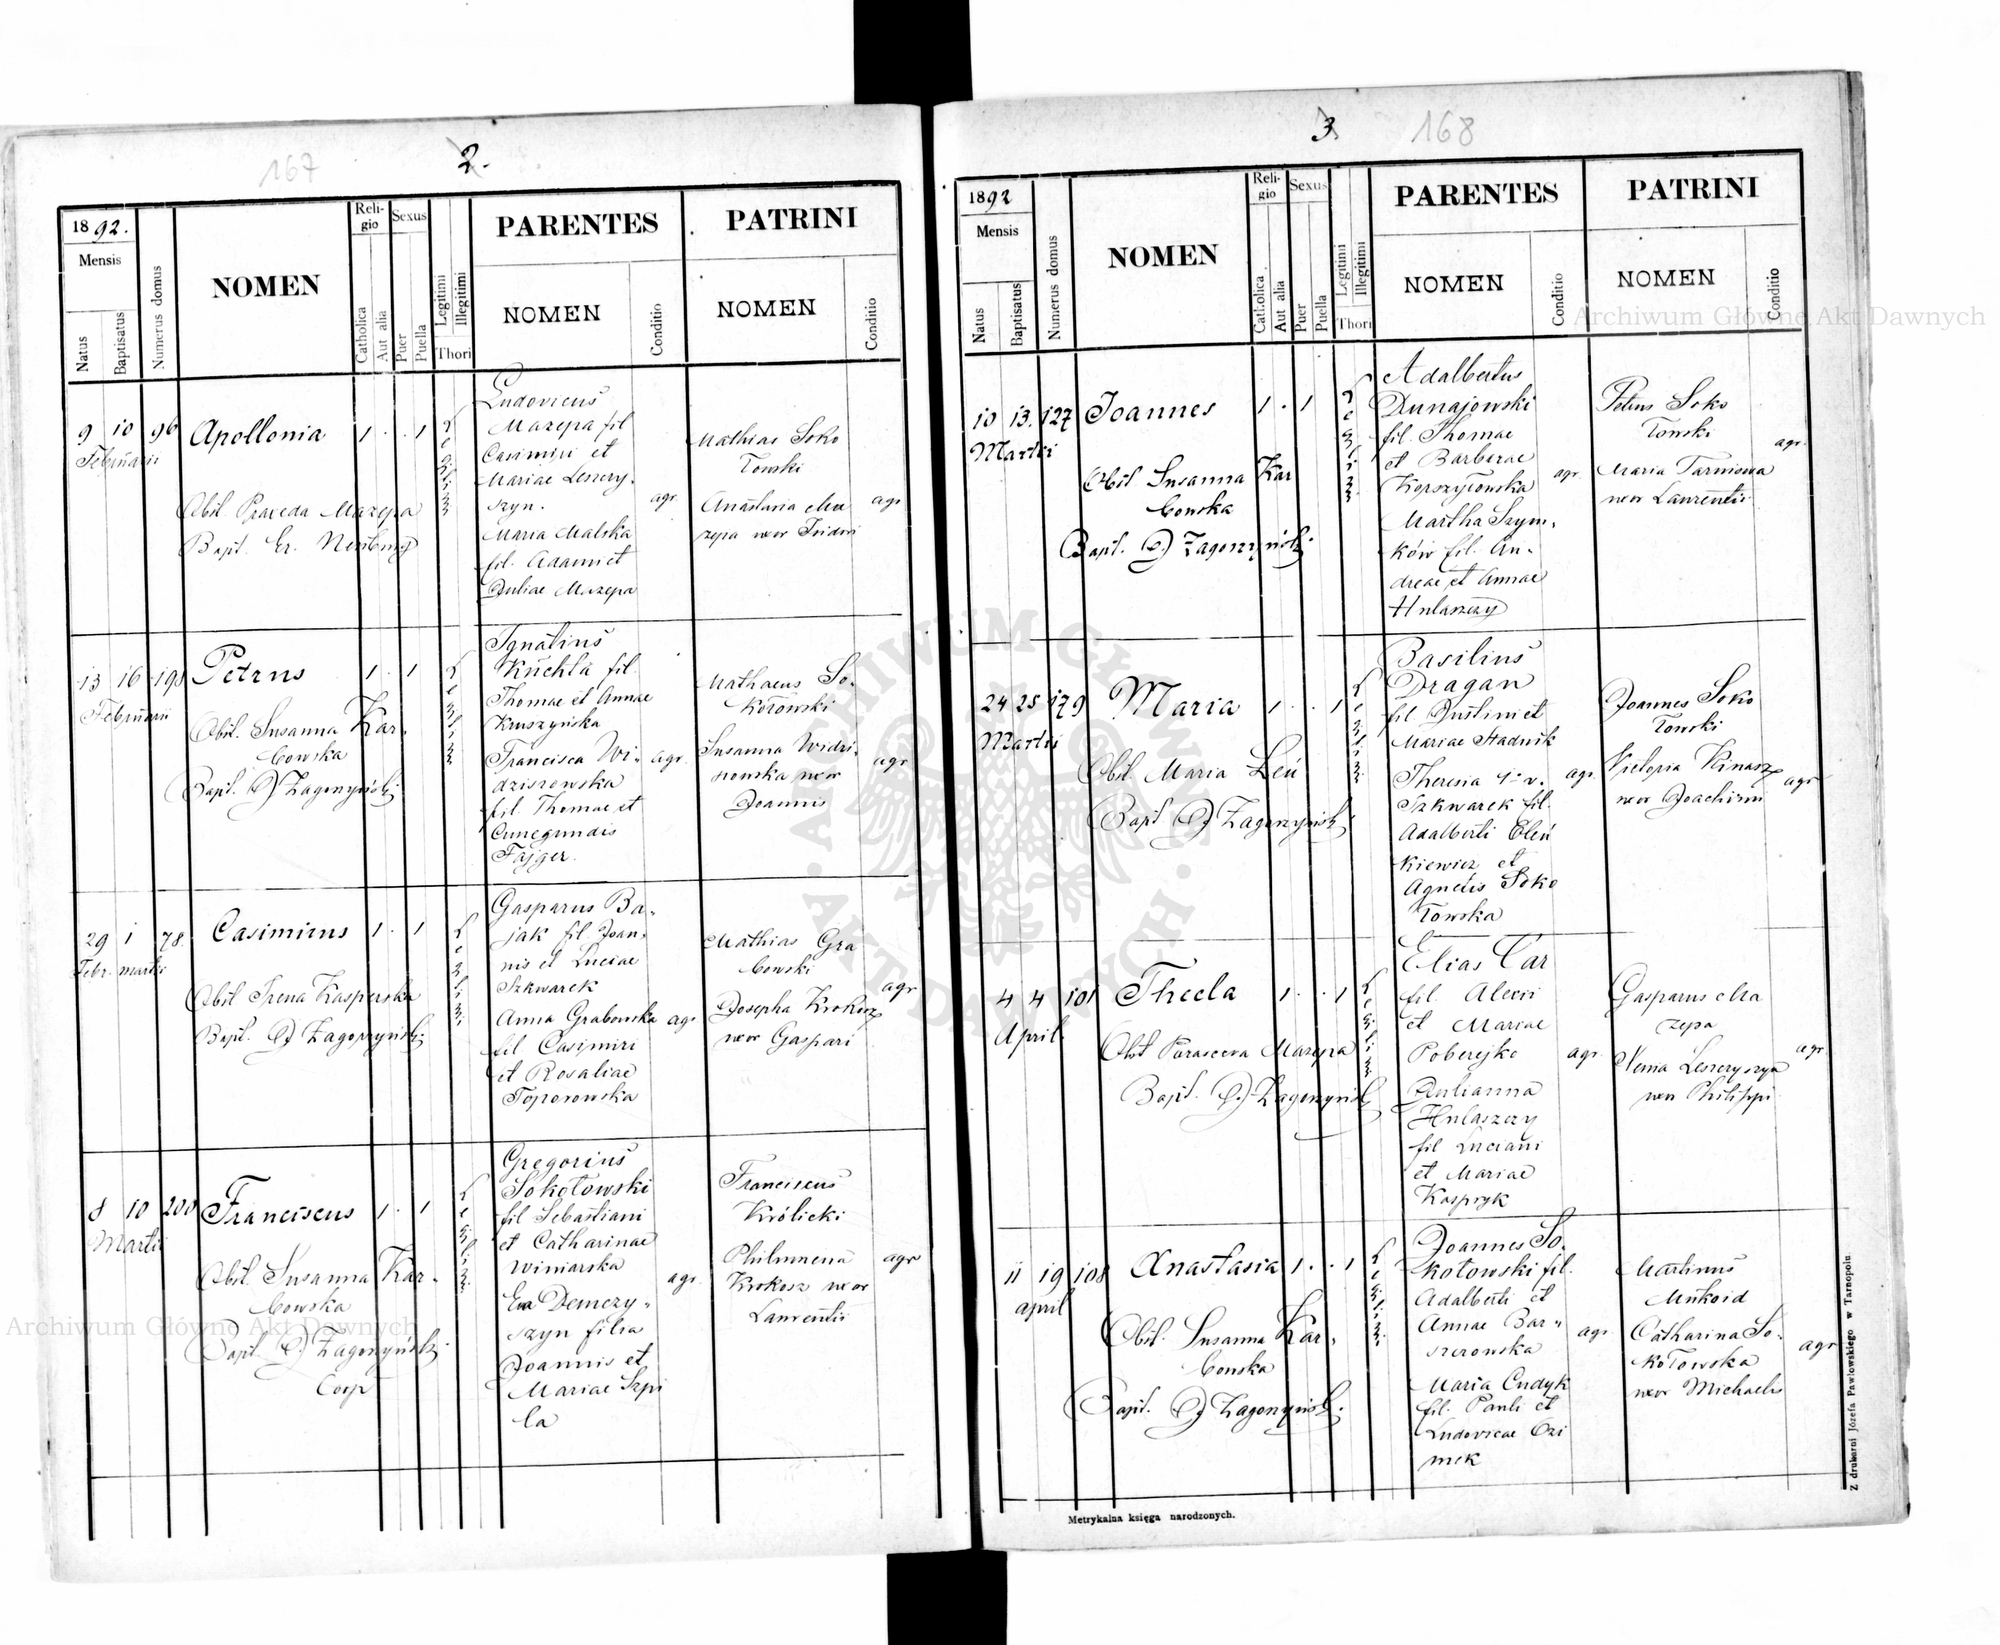 167
2.
1892.
Mensis
Natus
Baptisatus
Numerus domus
NOMEN
Reli-
gio
Catholica
Aut alia
Sexus
Puer
Puella
Legitimi
Illegitimi
Thori
PARENTES
NOMEN
Conditio
PATRINI
NOMEN
Conditio
9 10 96 Apollonia 1 . . 1
Februarii
Obst. Praxeda Mazepa
Bapt.
Ludovicus
Mazepa fil
Casimiri et
Mariae Leszczy-
szyn.
Maria Malska
fil. Adami et
Juliae Mazepa
agr.
Mathias Soko
łowski
Anastasia Ma
zepa uxor Isidori
agr
13 16 198 Petrus 1 . 1
Februarii
Obst. Susanna Kar-
bowska
Bapt. J Zagórzyński
Ignatius
Kuchta fil.
Thomae et Annae
Kruszyńska
Francisca Wi-
dziszewska
fil. Thomae et
Cunegundis
Fajger.
agr.
Mathaeus So-
kołowski
Susanna Widzi-
szowska uxor
Joannis
agr
29 1 78. Casimirus 1 . 1
Febr. martii
Obst Irena Kasperska
Bapt. J Zagórzyński
Gasparus Ba-
jak fil. Joan-
nis et Luciae
Szkwarek
Anna Grabowska
fil Casimiri
et Rosaliae
Toporowska
agr
Mathias Gra
bowski
Josepha Krokosz
uxor Gaspari
agr
8 10 200 Franciscus 1 . 1
Martii
Obst. Susanna Kar-
bowska
Bapt. J Zagórzyński
Coop
Gregorius
Sokołowski
fil Sebastiani
et Catharinae
Winiarska
Eva Demczy-
szyn filia
Joannis et
Mariae Szpi
la
agr.
Franciscus
Królicki
Philumena
Krokosz uxor
Laurentii
agr
168
3
1892
Mensis
Natus
Baptisatus
Numerus domus
NOMEN
Reli-
gio
Catholica
Aut alia
Sexus
Puer
Puella
Legitimi
Illegitimi
Thori
PARENTES
NOMEN
Conditio
PATRINI
NOMEN
Conditio
10 13. 127 Joannes 1 . 1
Martii
Obst Susanna Kar
bowska
Bapt. J Zagórzyński
Adalbertus
Dunajowski
fil. Thomae
et Barbarae
Kopszytowska
Martha Szym-
ków fil. An-
dreae et Annae
Hulaszczy
agr.
Petrus Soko
łowski
Maria Tarnowa
uxor Laurentii
agr.
24 25 179 Maria 1 . . 1
Martii
Obst. Maria Leń
Bapt J Zagórzyński
Basilius
Dragan
fil. Justini et
Mariae Stadnik
Theresia 1o v.
Szkwarek fil.
Adalberti Oleń
kiewicz et
Agnetis Soko
łowska
agr.
Joannes Soko
łowski
Victoria Kinasz
uxor Joachimi
agr
4 4 101 Thecla 1 . . 1
April.
Obst Parasceva Mazepa
Bapt. J Zagórzyński
Elias Car
fil. Alexii
et Mariae
Poberejko
Julianna
Hulaszczy
fil Luciani
et Mariae
Kaspryk
agr.
Gasparus Ma
zepa
Xenia Leszczyszyn
uxor Philippi
agr
11 19 108 Anastasia 1 . . 1
april
Obst. Susanna Kar-
bowska
Bapt. J Zagórzyński.
Joannes So-
kołowski fil.
Adalberti et
Annae Bar-
szczowska
Maria Cudyk
fil. Pauli et
Ludovicae Ozi
mek
agr.
Martinus
Mukoid
Catharina So-
kołowska
uxor Michaelis
agr
Metrykalna księga narodzonych.
Z drukarni Józefa Pawłowskiego w Tarnopolu
Archiwum Główne Akt Dawnych
Archiwum Główne Akt Dawnych
ARCHIWUM GŁÓWNE AKT DAWNYCH